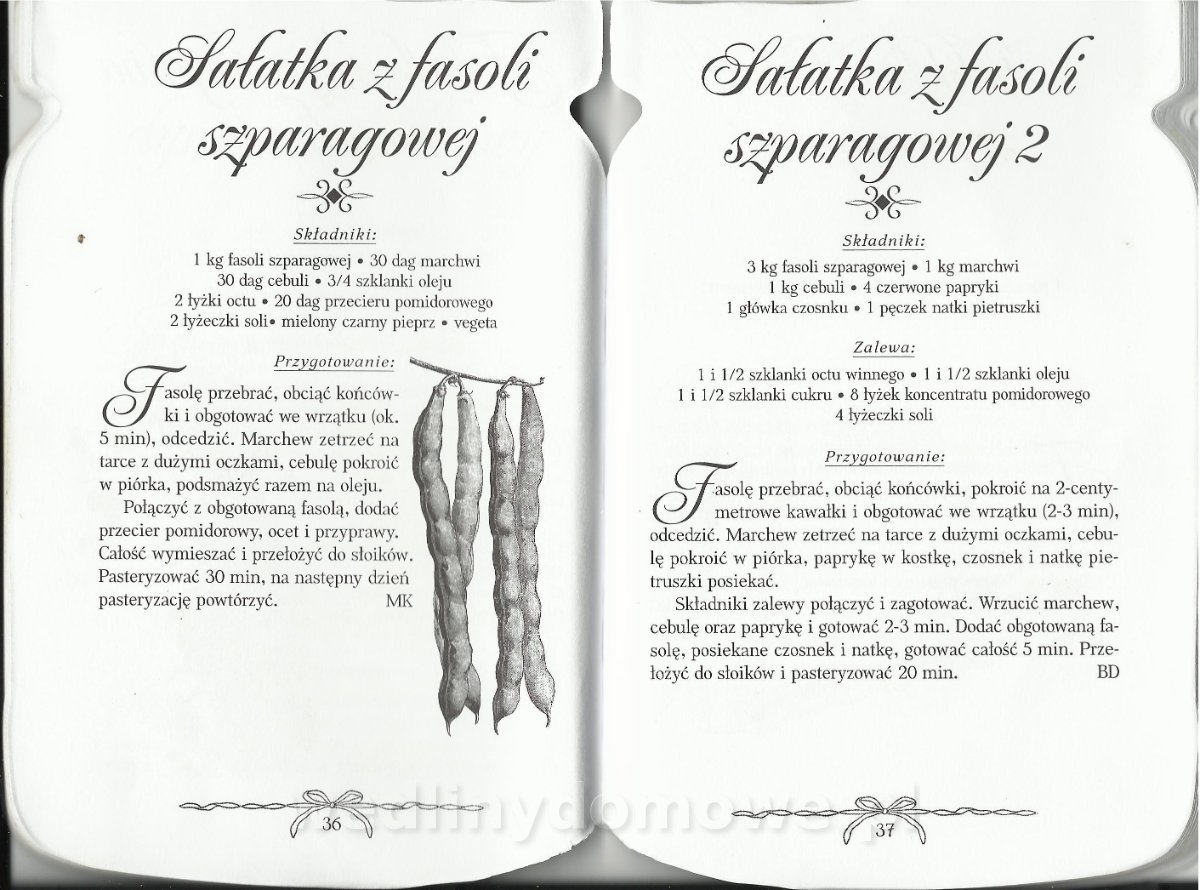 Sałatka z fasoli
szparagowej
Składniki:
1 kg fasoli szparagowej • 30 dag marchwi
30 dag cebuli • 3/4 szklanki oleju
2 łyżki octu • 20 dag przecieru pomidorowego
2 łyżeczki soli• mielony czarny pieprz • vegeta
Przygotowanie:
Fasolę przebrać, obciąć końców-
ki i obgotować we wrzątku (ok.
5 min), odcedzić. Marchew zetrzeć na
tarce z dużymi oczkami, cebulę pokroić
w piórka, podsmażyć razem na oleju.
Połączyć z obgotowaną fasolą, dodać
przecier pomidorowy, ocet i przyprawy.
Całość wymieszać i przełożyć do słoików.
Pasteryzować 30 min, na następny dzień
pasteryzację powtórzyć. MK
36
Sałatka z fasoli
szparagowej 2
Składniki:
3 kg fasoli szparagowej • 1 kg marchwi
1 kg cebuli • 4 czerwone papryki
1 główka czosnku • 1 pęczek natki pietruszki
Zalewa:
1 i 1/2 szklanki octu winnego • 1 i 1/2 szklanki oleju
1 i 1/2 szklanki cukru • 8 łyżek koncentratu pomidorowego
4 łyżeczki soli
Przygotowanie:
Fasolę przebrać, obciąć końcówki, pokroić na 2-centy-
metrowe kawałki i obgotować we wrzątku (2-3 min),
odcedzić. Marchew zetrzeć na tarce z dużymi oczkami, cebu-
lę pokroić w piórka, paprykę w kostkę, czosnek i natkę pie-
truszki posiekać.
Składniki zalewy połączyć i zagotować. Wrzucić marchew,
cebulę oraz paprykę i gotować 2-3 min. Dodać obgotowaną fa-
solę, posiekane czosnek i natkę, gotować całość 5 min. Prze-
łożyć do słoików i pasteryzować 20 min. BD
37